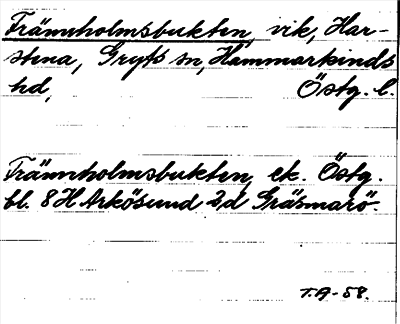 Trännholmsbukten, vik, Har-
stena, Gryts sn, Hammarkinds
hd, Östg. l.
Trännholmsbukten, ek. Östg.
bl. 8 H Arkösund 2d Gräsmarö
T.A-58.